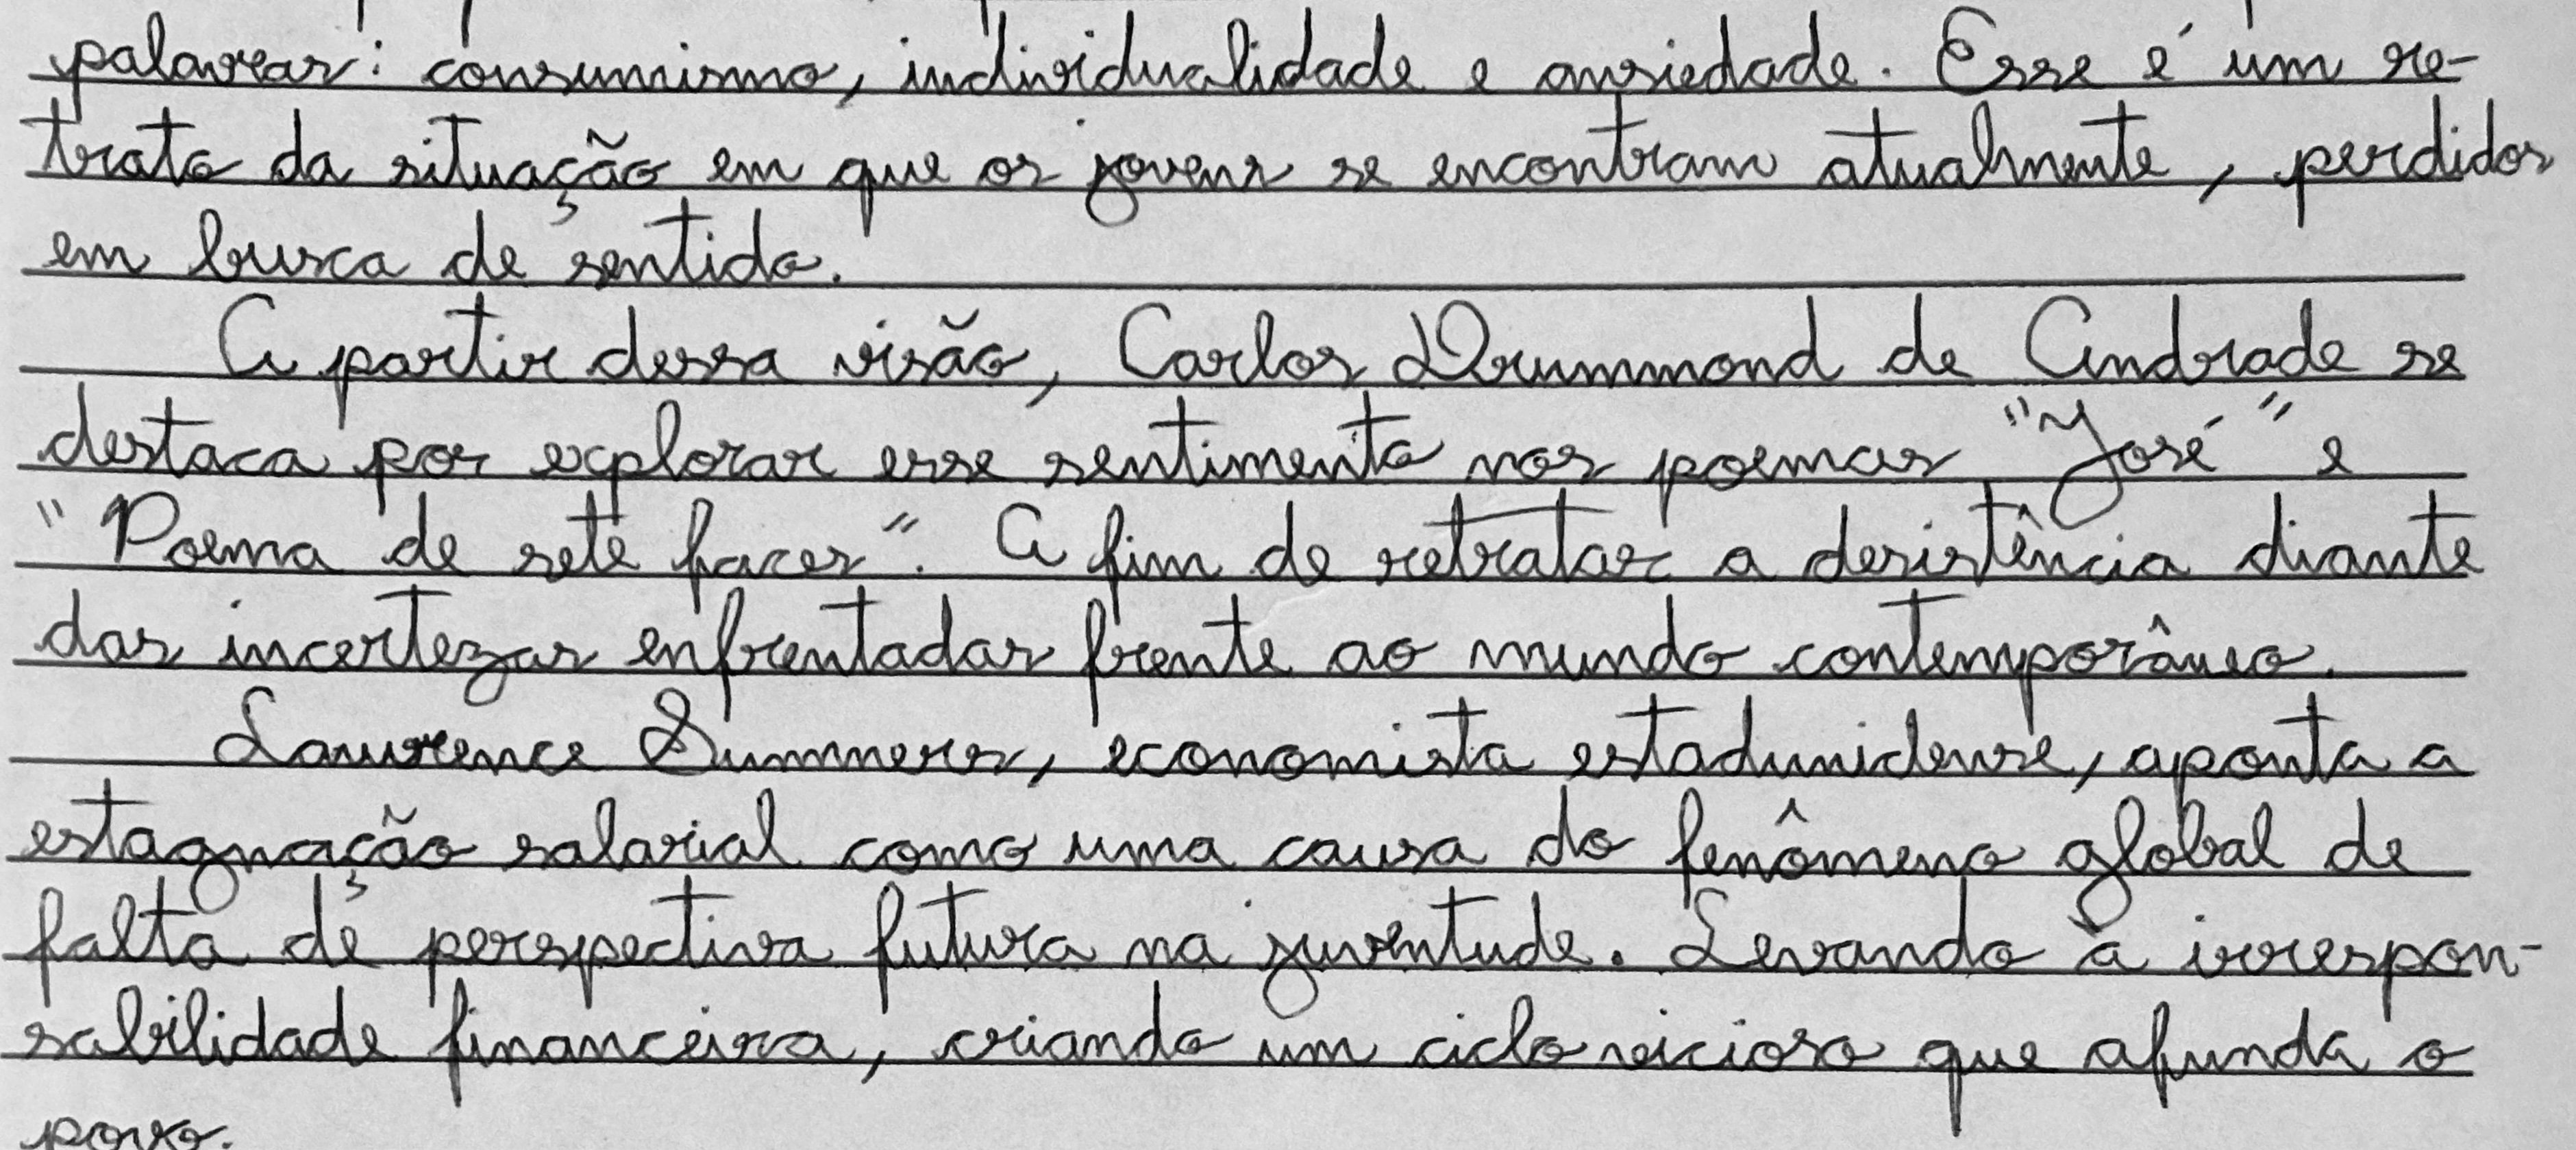 palavras: consumismo, individualidade e ansiedade. Esse é um re-
trato da situação em que os jovens se encontram atualmente, perdidos
em busca de sentido.
A partir dessa visão, Carlos Drummond de Andrade se
destaca por explorar esse sentimento nos poemas "José" e
"Poema de sete faces". A fim de retratar a desistência diante
das incertezas enfrentadas frente ao mundo contemporâneo.
Laurence Summers, economista estadunidense, aponta a
estagnação salarial como uma causa do fenômeno global de
falta de perspectiva futura na juventude. Levando à irrespon-
sabilidade financeira, criando um ciclo vicioso que afunda o
povo.